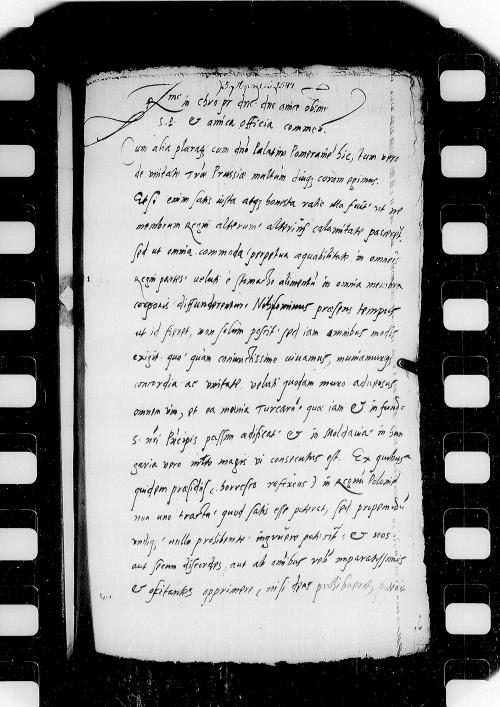 R[everendissi]me in chro pr dne dne amice obsme
S. P. et amica officia commen.
Cum alia pleraq cum dno Palatino Pomeraniae hic, tum vero
de unitate Prussiae multum diuq coram egimus.
Etsi enim satis iusta atq honesta ratio illa fuit ut ne
membrum Regni alterum alterius calamitate
sed ut omnia commoda perpetua aequabilitate in omneis
Regni parteis veluti e stomacho alimentum in omnia membra
corporis diffunderentur. Nihilominus praesens tempus
ut id fieret, non solum poscit sed iam omnibus modis
exigit. quo quam coniunctissime vivamus,
concordia ac unitate, veluti quodam muro adversus
omnem vim, et ea moenia Turcarum quae iam et in fundo
S. nri Principis passim aedificat et in Moldavia in hun
garia vero multo magis vi consecutus est. Ex quibus
quidem praesidiis (horresco referens) in Regnum Poloniae
non uno tractu quod satis esse poterat, sed propemodum
undiq nullo prohibente ingruere poterit et nos
aut secum discordes, aut ab omnibus rebus imparatissimos
et oscitantes opprimere, nisi deus prohibuerit, poterit